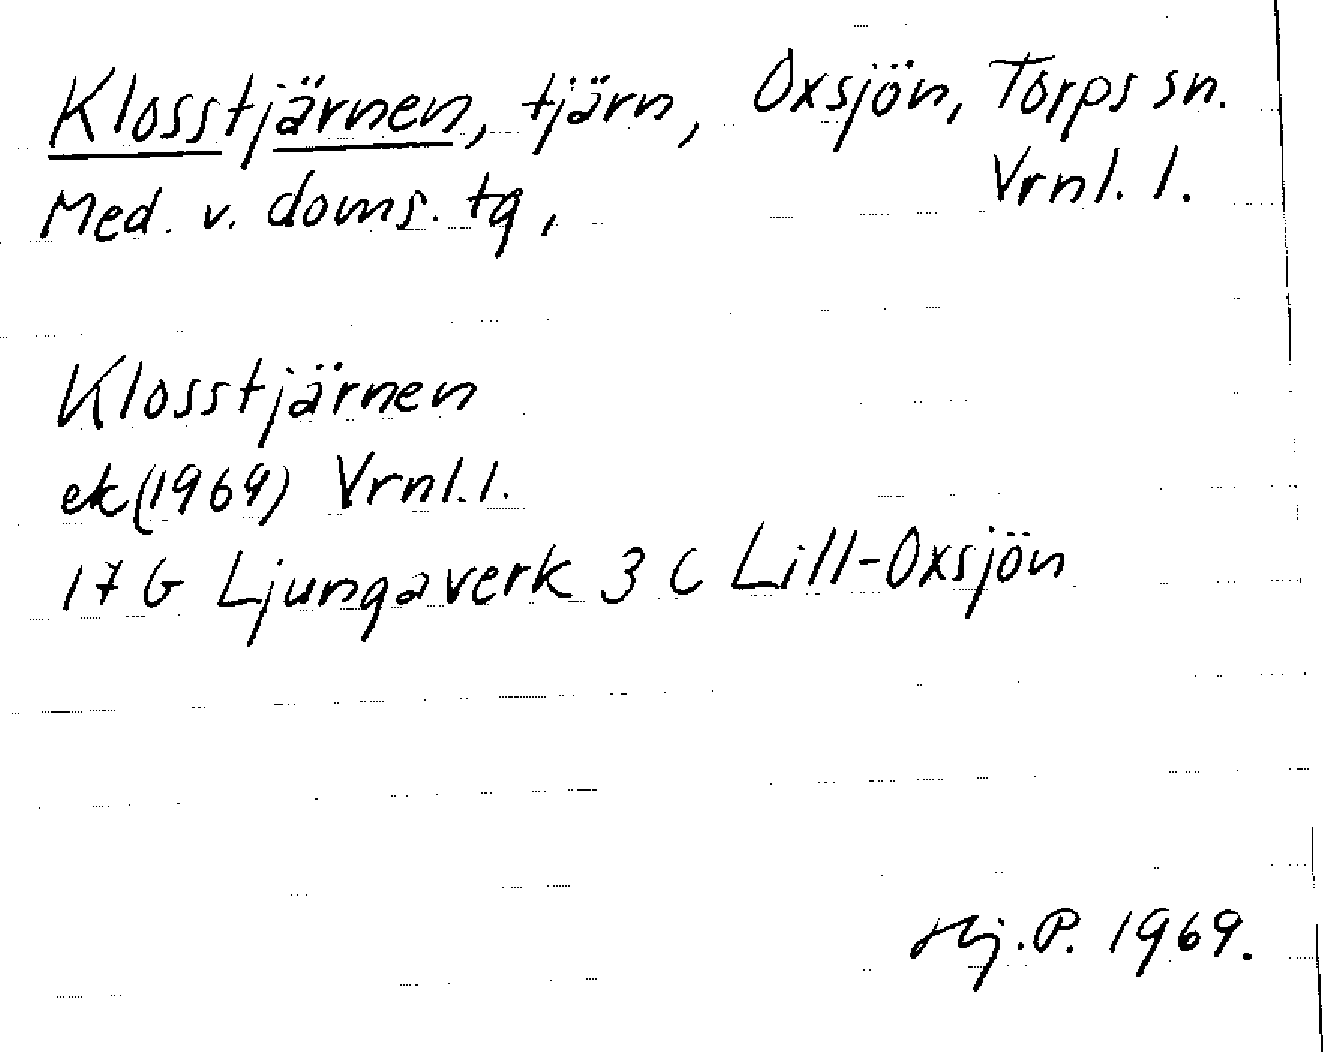 Klosstjärnen, tjärn, Oxsjön, Torps sn.
Vrnl. l.
Med. v. doms. tg,
Klosstjärnen
ek (1969) Vrnl. l.
17 G Ljungaverk 3 c Lill-Oxsjön
Hj. P. 1969.